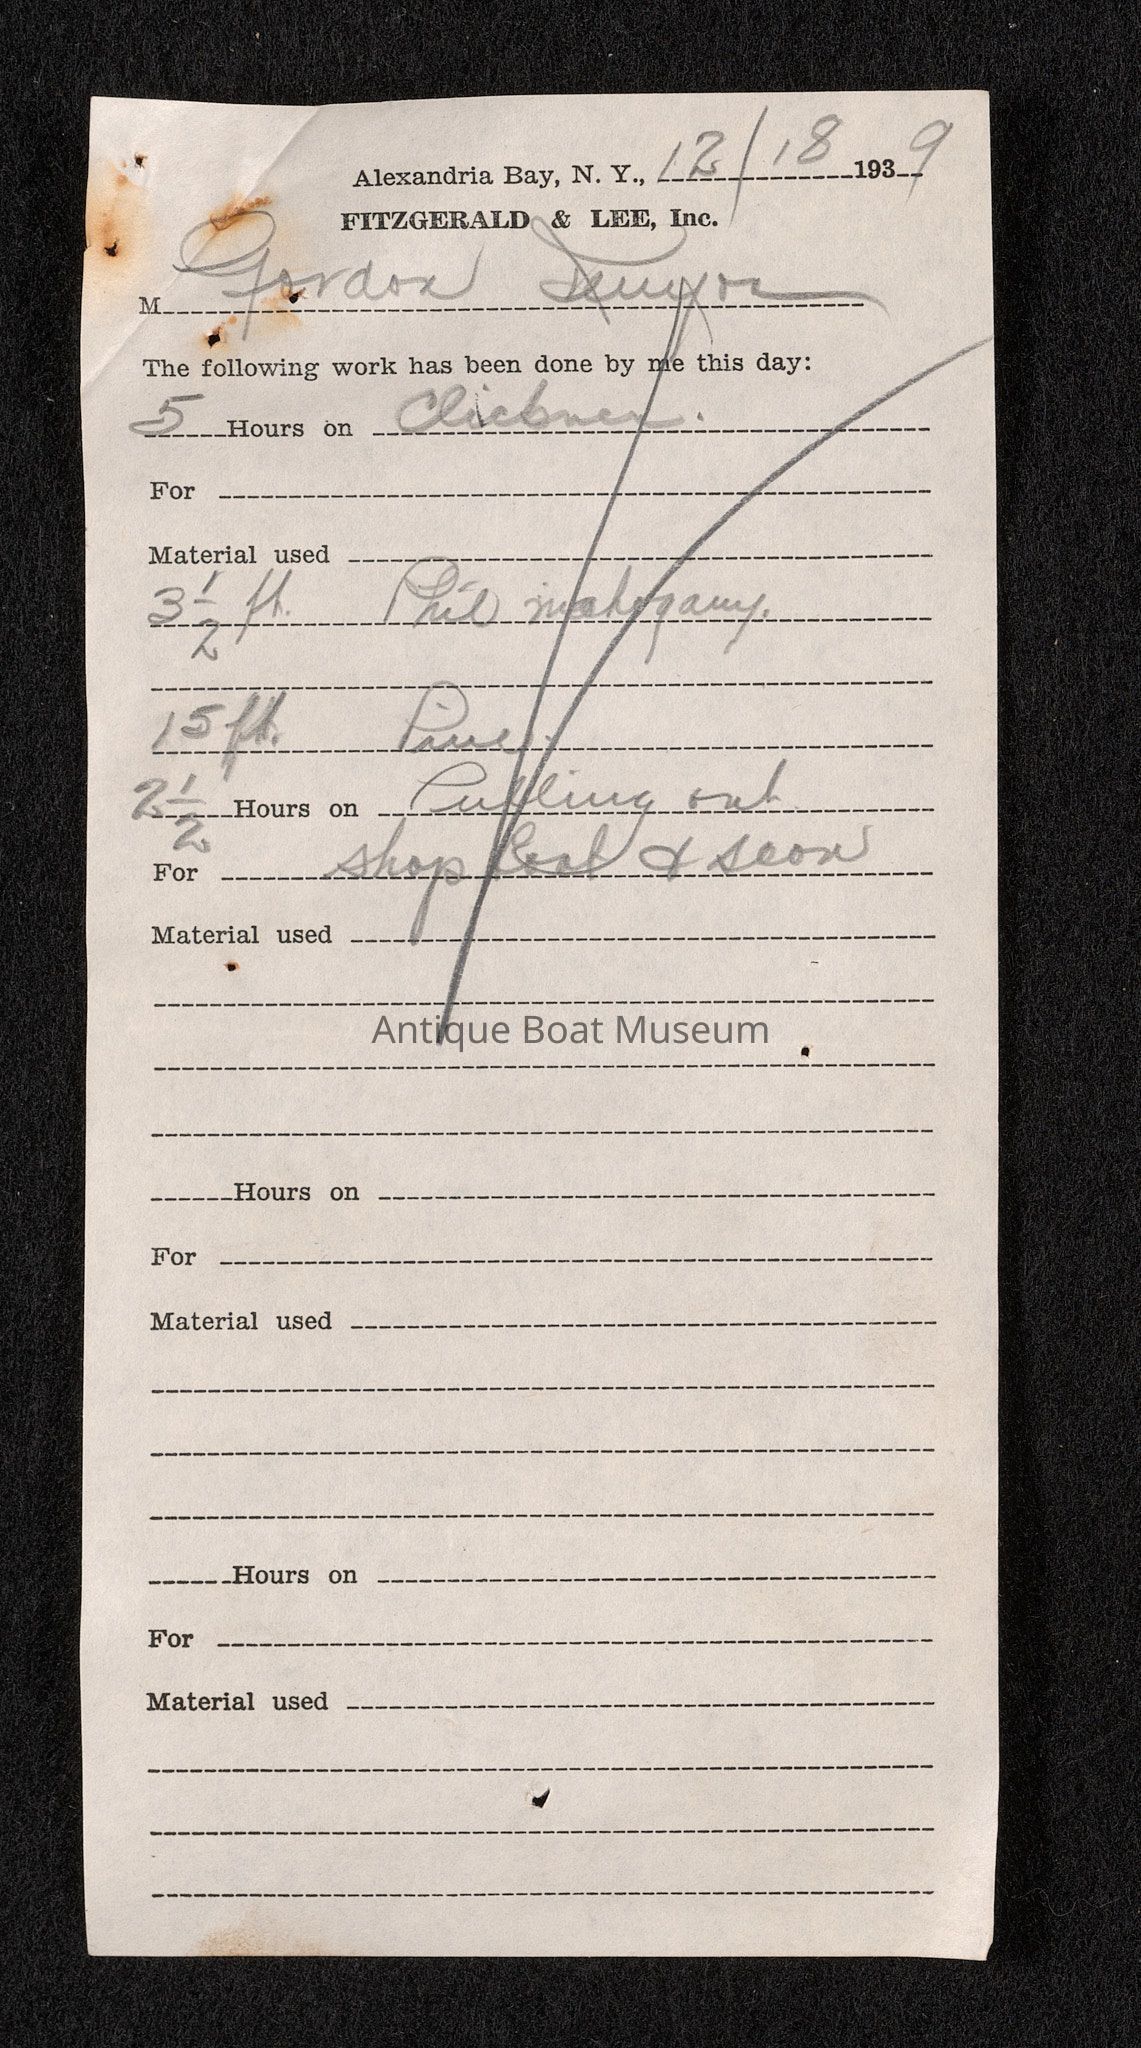 Alexandria Bay, N. Y., 12/18 1939
FITZGERALD & LEE, Inc.
M Gordon
The following work has been done by me this day:
5 Hours on
For
Material used
3 1/2 ft. Phil mahogany.
15 ft. Pine.
2 1/2 Hours on Pulling out
For shop boat & scow
Material used
Antique Boat Museum
Hours on
For
Material used
Hours on
For
Material used